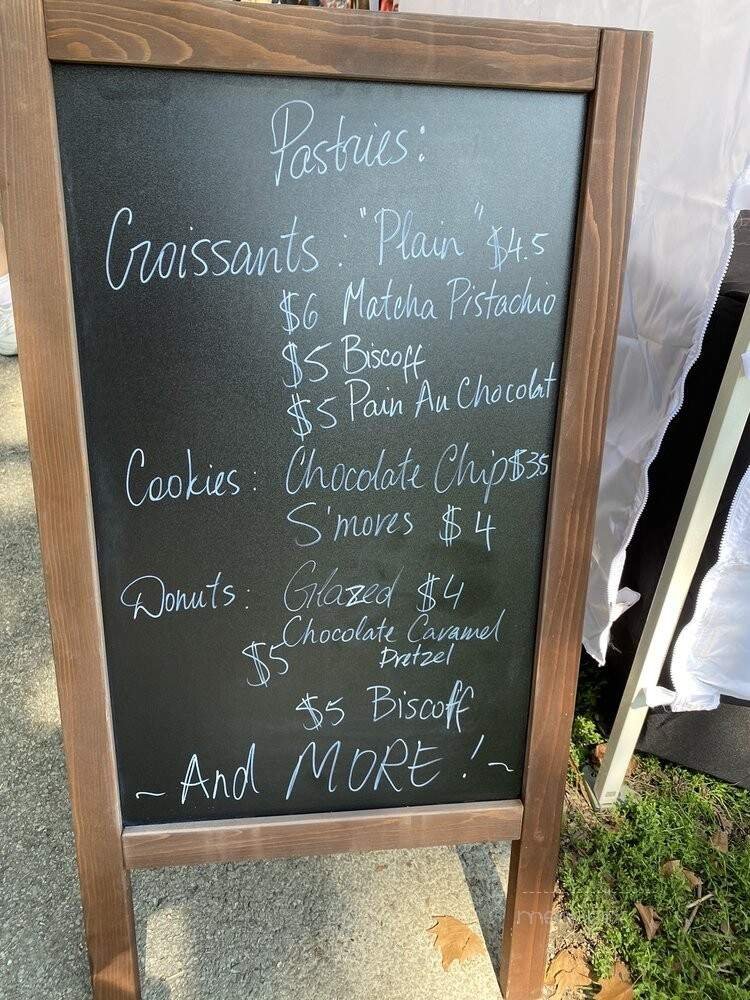 Pastries:
Croissants : "Plain" $4.5
$6 Matcha Pistachio
$5 Biscoff
$5 Pain Au Chocolat
Cookies : Chocolate Chip $3.5
S'mores $4
Donuts : Glazed $4
Chocolate Caramel
$5 Pretzel
$5 Biscoff
~ And MORE! ~